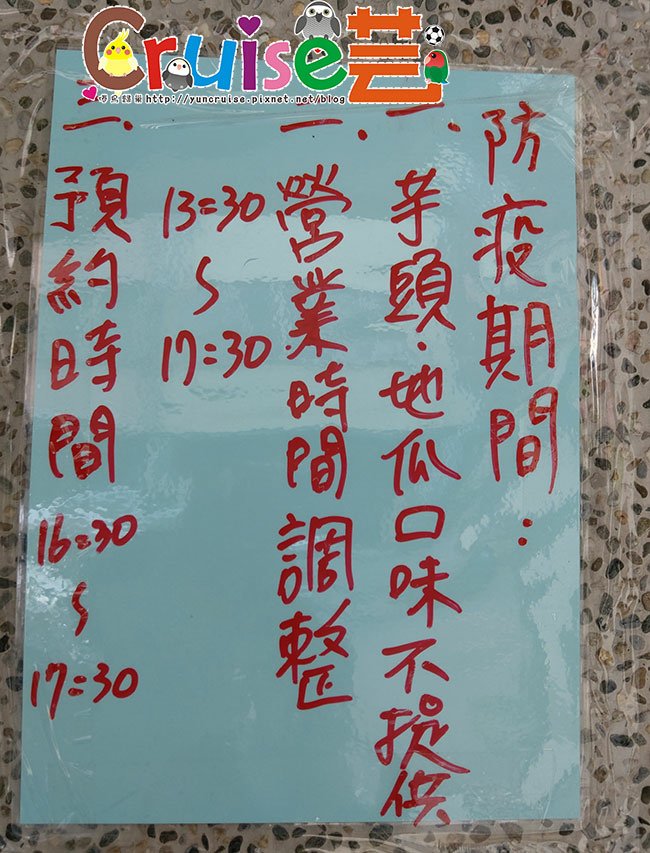 Cruise芸
http://yuncruise.pixnet.net/blog
防疫期間：
一.芋頭.地瓜口味不提供
一.營業時間調整
13:30
～
17:30
二.預約時間
16:30
～
17:30